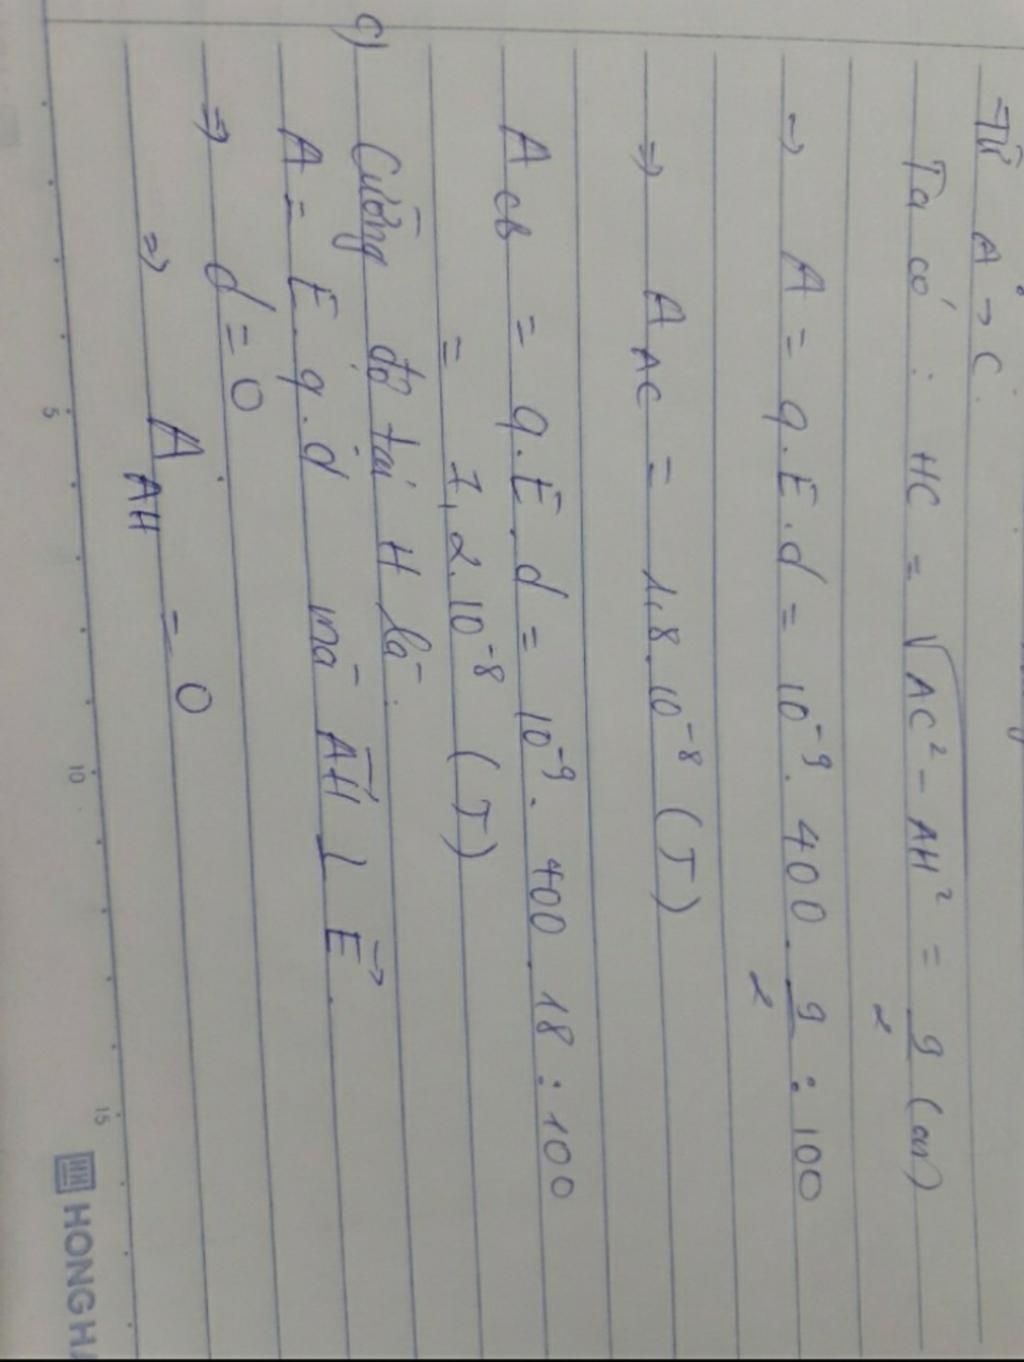 - Từ A → C.
Ta có : HC = √AC² - AH² = 9/2 (cm)
→ A = q.E.d = 10⁻⁹. 400. 9/2 : 100
⇒ A_AC = 1,8.10⁻⁸ (J)
A_CB = q.E.d = 10⁻⁹. 400. 18 : 100
= 7,2.10⁻⁸ (J)
c) Cường độ tại H là:
A = E.q.d mà AH ⊥ E→.
⇒ d = 0
⇒ A_AH = 0
5 10 15
HONG H